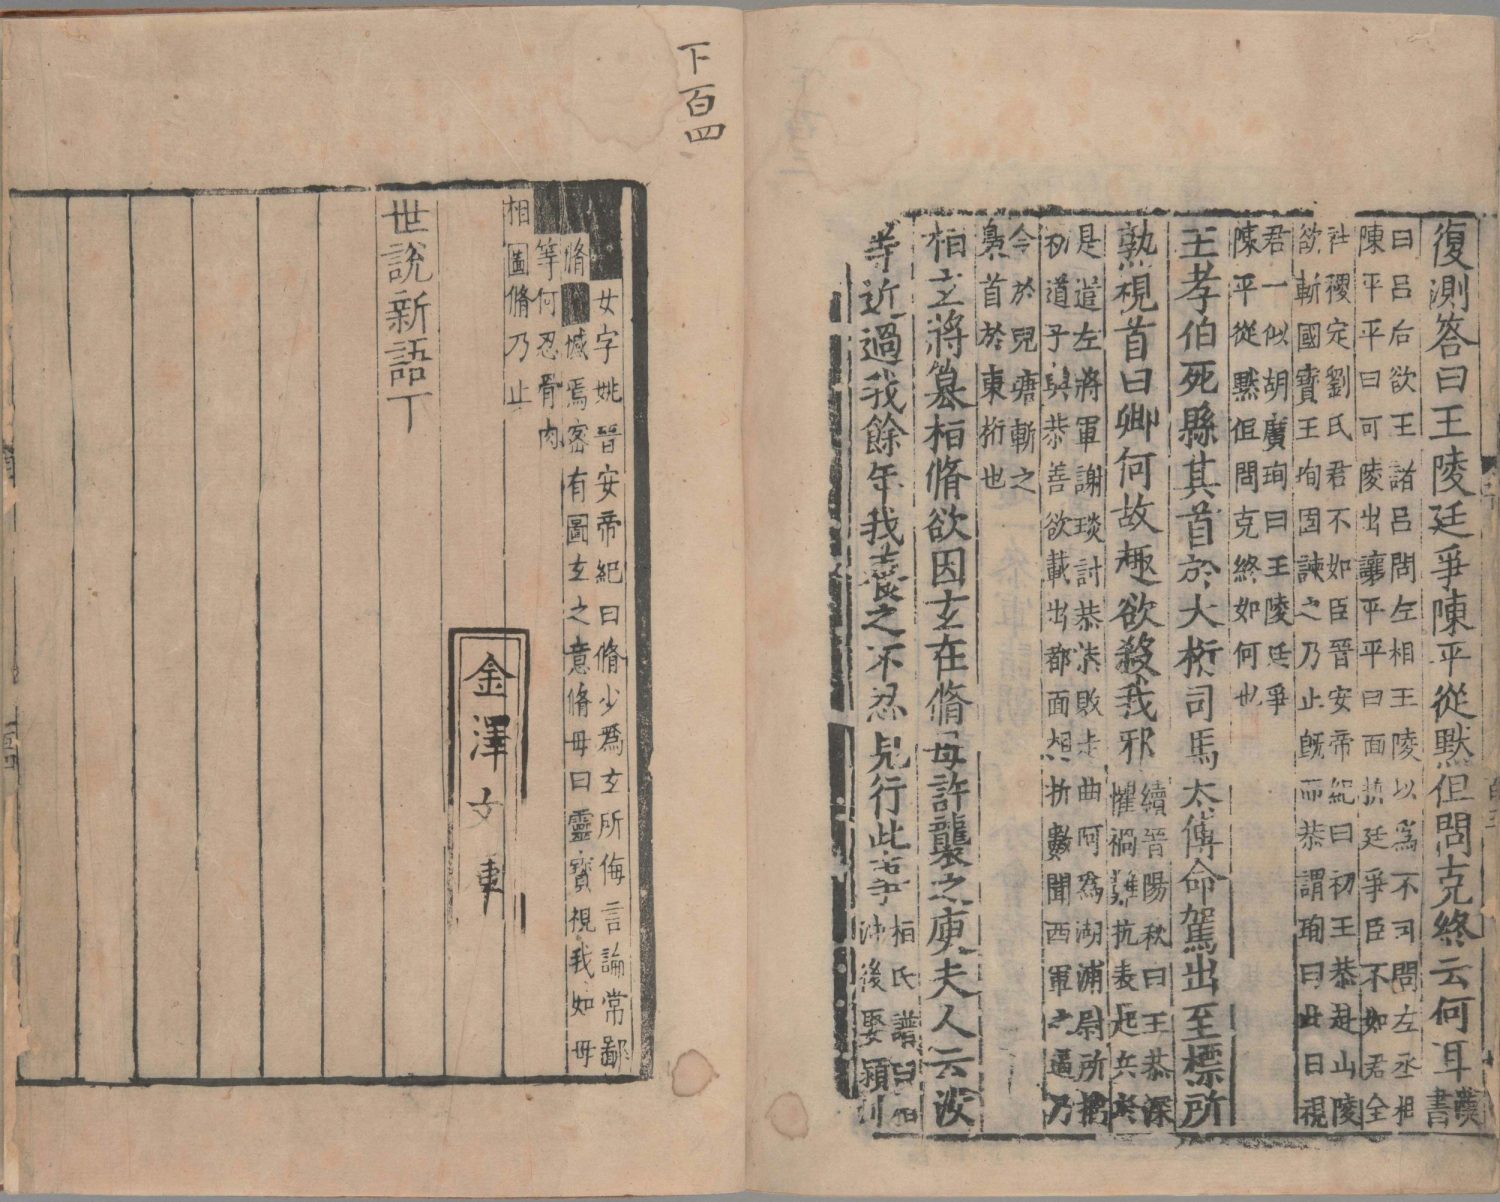 復測答曰王陵廷爭陳平從默但問克終云何耳漢書
曰吕后欲王諸吕問左相王陵以為不可問左丞相
陳平平曰可陵出讓平平曰面折廷爭臣不如君全
社稷定劉氏君不如臣晉安帝紀曰初王恭赴山陵
欲斬國寳王珣固諫之乃止旣而恭謂珣曰比日視
君一似胡廣珣曰王陵廷爭
陳平從默但問克終如何也
王孝伯死縣其首於大桁司馬太傅命駕出至標所
熟視首曰卿何故趣欲殺我邪
續晉陽秋曰王恭深
懼禍難抗表起兵於
是遣左將軍謝琰討恭恭敗走曲阿為湖浦尉所擒
初道子與恭善欲載出都面相折數聞西軍之逼乃
令於兒塘斬之
梟首於東桁也
桓玄將簒桓脩欲因玄在脩母許襲之庾夫人云汝
等近過我餘年我養之不忍見行此事
桓氏譜曰桓
沖後娶潁川
下百四
女字姚晉安帝紀曰脩少為玄所侮言論常鄙
脩憾焉密有圖玄之意脩母曰靈寳視我如母
等何忍骨肉
相圖脩乃止
金澤文庫
世說新語下